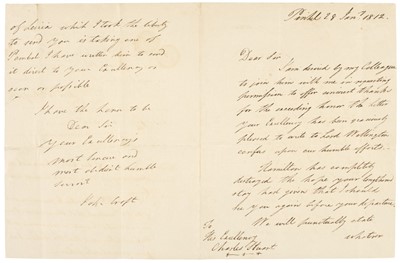 Pinhel 28 Jany. 1812
Dear Sir
I am desired by my Colleagues
to join them with me in requesting
permission to offer our best thanks
for the exceeding honor the letter
your Excellency has been graciously
pleased to write to Lord Wellington
confers upon our humble efforts.
Hamilton has completely
destroyed the hope your lengthened
stay had given that I should
see you again before your departure.
We will punctually state
whatever
To
His Excellency
Charles Stuart
of Leiria which I took the liberty
to send you is taking care of
Pombal I have written him to send
it direct to your Excellency as
soon as possible
I have the honor to be
Dear Sir
Your Excellency's
most sincere and
most obedient humble
Servant
Croft